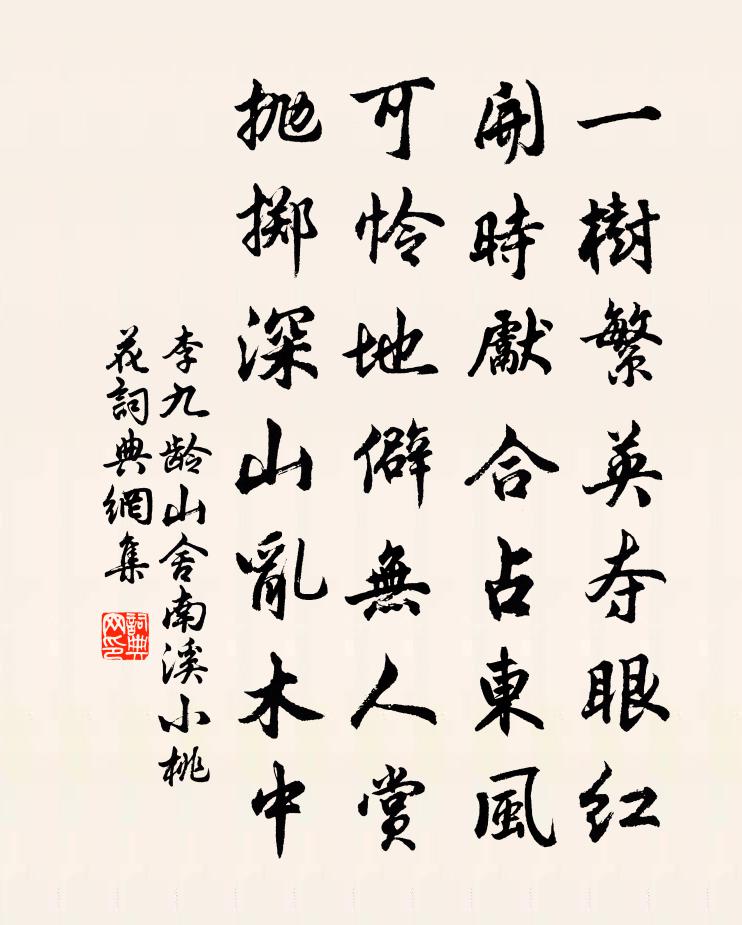 一樹繁英夺眼红
開時獻合占東風
可怜地僻無人賞
抛掷深山亂木中
李九龄山舍南溪小桃
花詞典網集
詞典网印